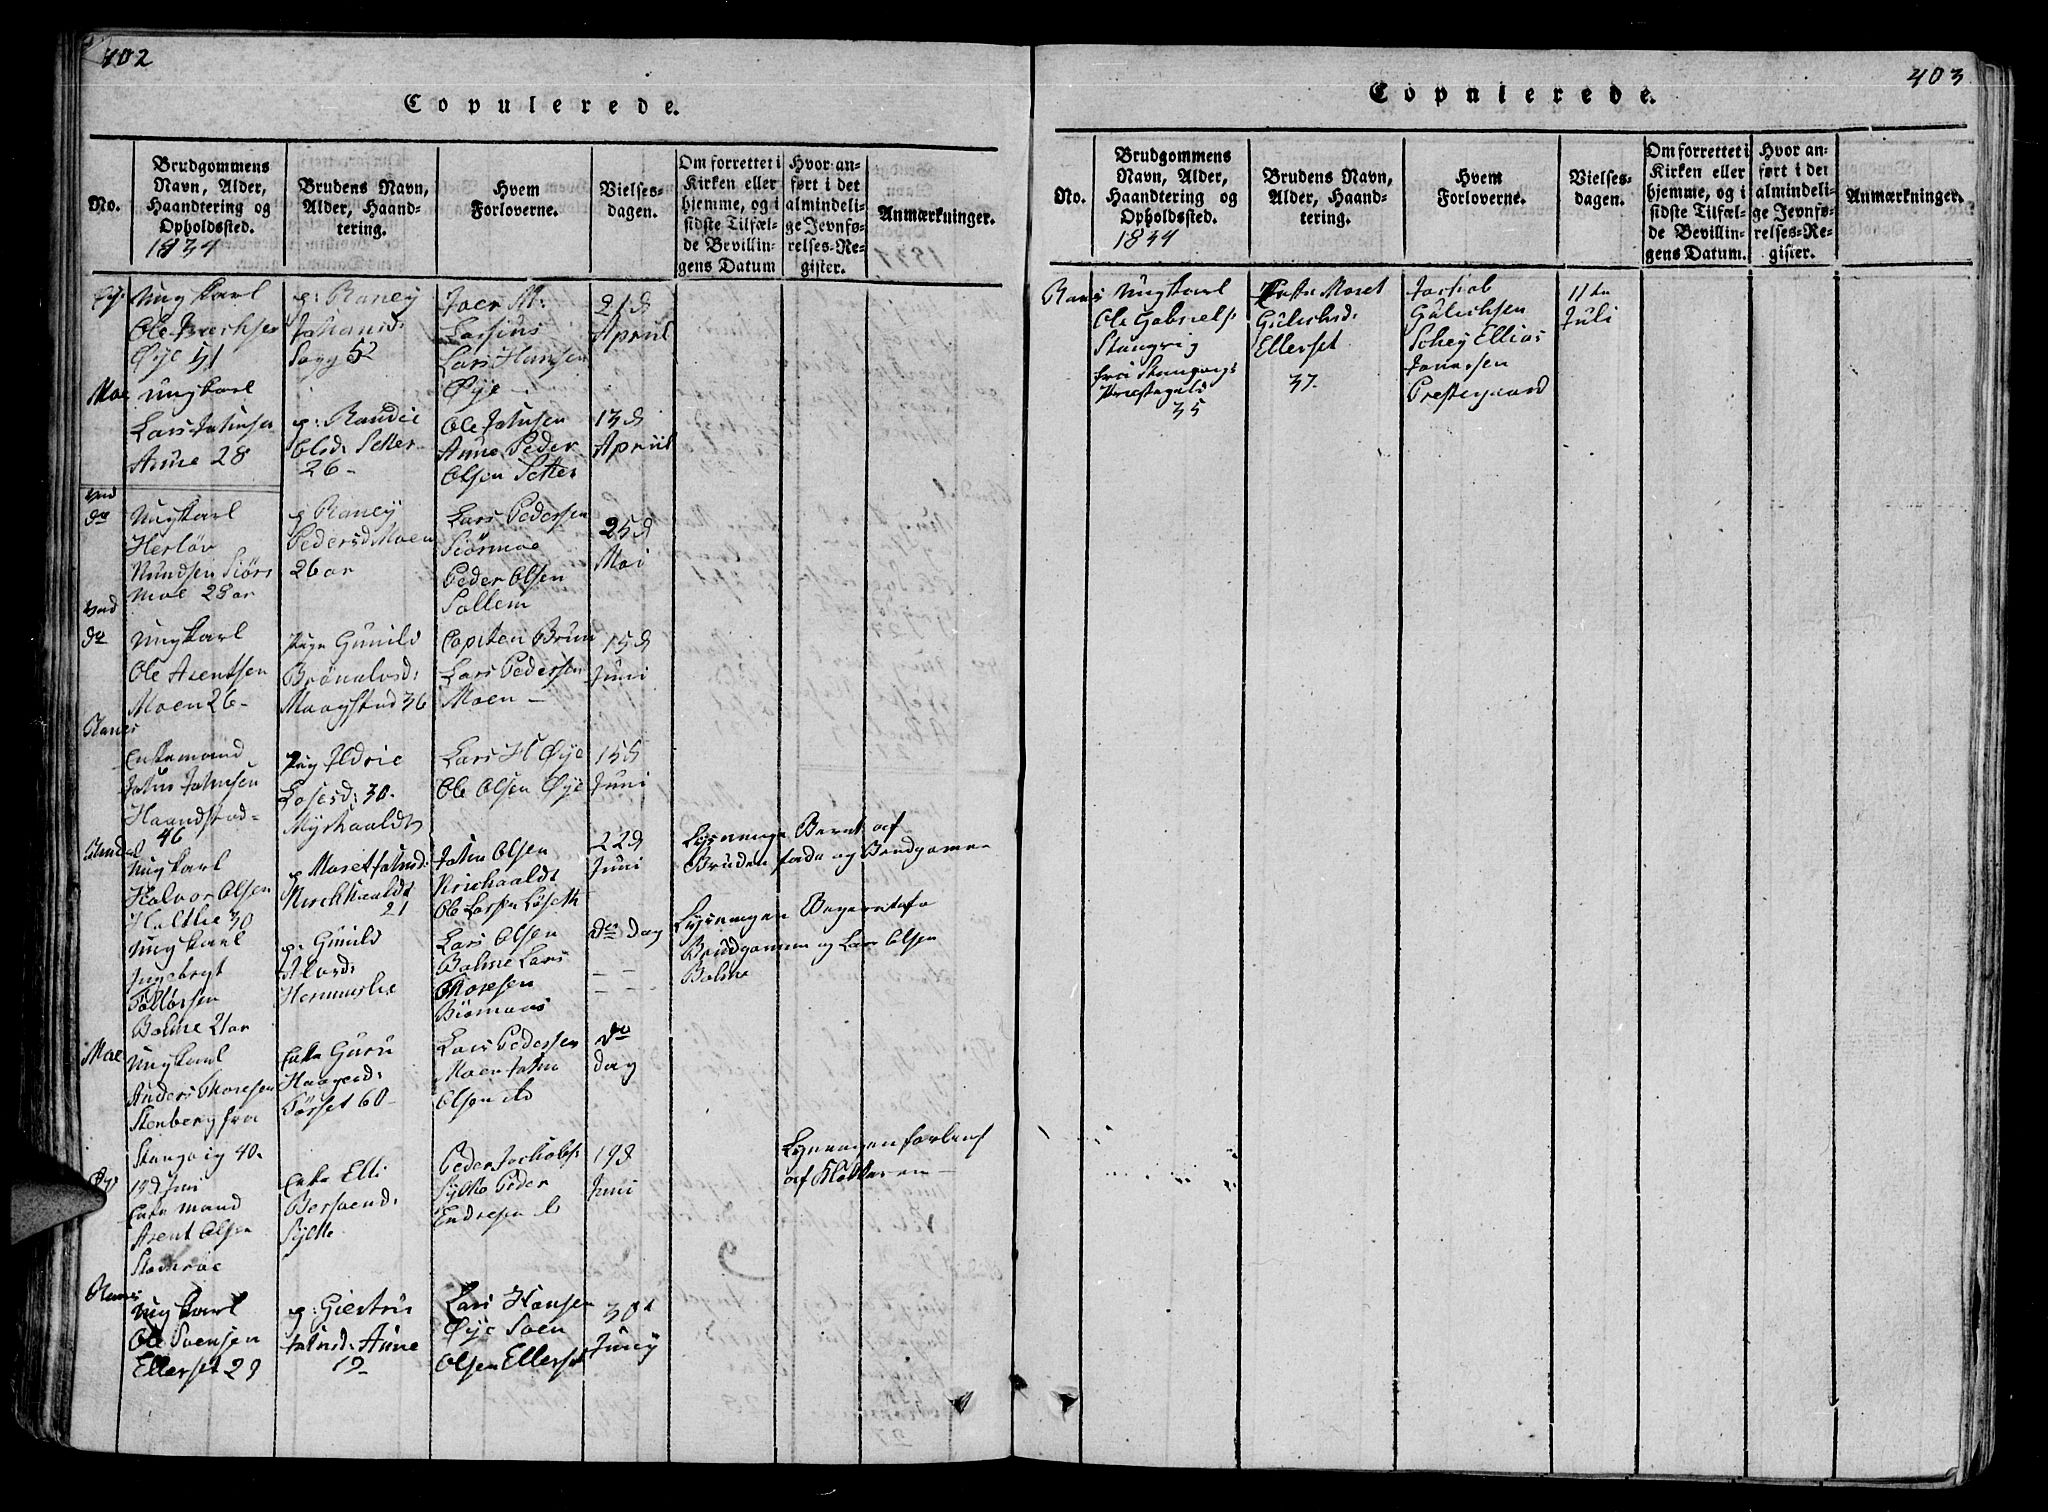 402
Copulerede.
No.
Brudgommens
Navn, Alder,
Haandtering og
Opholdssted.
1834
Brudens Navn,
Alder, Haand-
tering.
Hvem
Forloverne.
Vielses-
dagen.
Om forrettet i
Kirken eller
hjemme, og i
sidste Tilfæl-
de Bevillin-
gens Datum
Hvor an-
ført i det
almindeli-
ge Jevnfø-
relses-Re-
gister.
Anmærkninger.
Øye
Ungkarl
Øye 51
p: Raney
Johansd:
Sogg 52
Lassius
Lars Hansen
Øye
21d
April
Moe
Ungkarl
Lars Johnsen
Aune 28
p: Randie
Olsd: Setter
26 -
Ole Johnsen
Aune Peder
Olsen Setter
13d
April
do
Ungkarl
Herløv
Moe 28 ar
p Raney
Pedersd Moen
26 ar
Lars Pedersen
Siørmoe
Peder Olsen
Sollem
25d
Mai
do
Ungkarl
Ole Arentsen
Moen 26 -
Pige Gunild
Brønelvsd:
Maagstad 36
Capiten Brun
Lars Pedersen
Moen -
15d
Juni
Ranes
Enkemand
John Johnsen
Haandstad -
46
Pig Ildrie
Losesd: 30 -
Lars H Øye
Ole Olsen Øye
15d
Juni
Ungkarl
Halvor Olsen
30
p Maret Johnsd:
21
John Olsen
Ole Larsen Løseth
22d
Juni
Lysninge Bernt af
Bruden fade og Brudgomme
Ungkarl
Ingebrygt
Bolme 21 ar
p: Gunild
Lars Olsen
Bolme Lars
Thoresen
do Dag
Lysningen
Brudgommen og Lars Olsen
Bolme
Moe
Ungkarl
Anders Thoresen
Stenberg fra
Stangvig 40 -
Enke Guru
Haagensd:
Tørset 60 -
Lars Pedersen
Moen John
Olsen
do
Dag
Øy
19d Juni
Enke mand
Arent Olsen
Enke Elli
Bersvend:
Sylte
Peder Jachobs:
Sylte Peder
19d
Juni
Lysningen forlent
af Klokkeren -
Ranes
Ungkarl
Ole Svensen
Ellerset 29
p: Giertru
Johnsd: Aune
19
Lars Hansen
Øye Soen
Olsen Ellerset
30t
Juny
403
Copulerede.
No.
Brudgommens
Navn, Alder,
Haandtering og
Opholdssted.
1834
Brudens Navn,
Alder, Haand-
tering.
Hvem
Forloverne.
Vielses-
dagen.
Om forrettet i
Kirken eller
hjemme, og i
sidste Tilfæl-
de Bevillin-
gens Datum.
Hvor an-
ført i det
almindeli-
ge Jevnfø-
relses-Re-
gister.
Anmærkninger.
Ranes
Ungkarl
Ole Gabriels:
Stangvig
fra Stangvigs
Prestegield
35
Enke Maret
Gulichsd:
Ellerset
37.
Jachob
Gulichsen
Schey Ellias
Jonassen
Prestegaard
11te
Juli